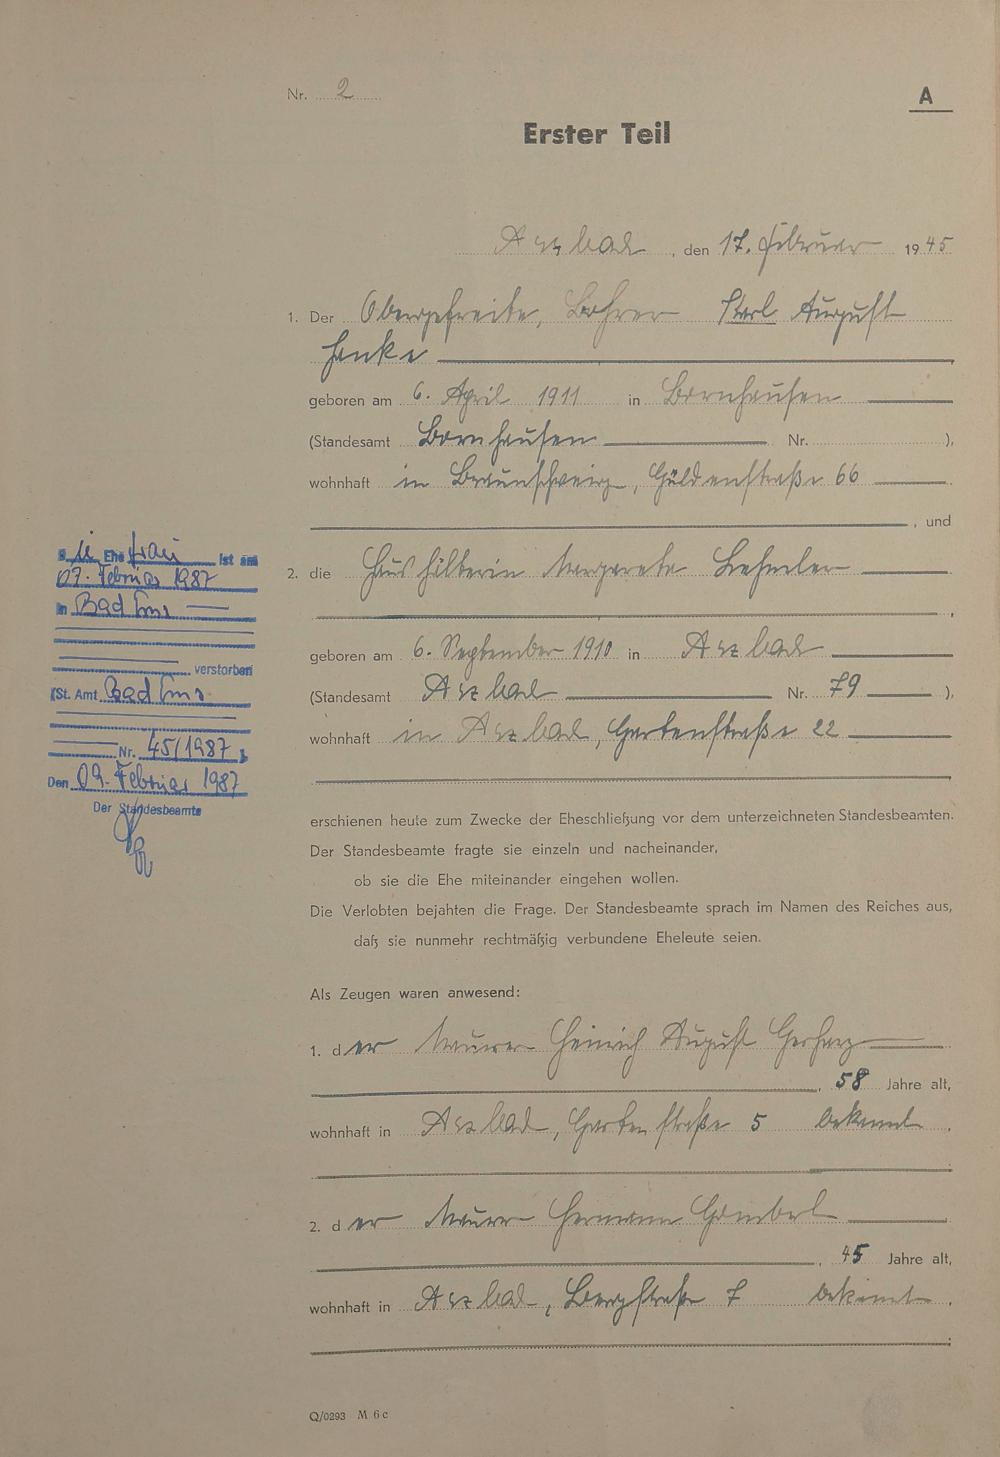 Nr. 2
A
Erster Teil
Arzbach, den 17. Februar 1945
1. Der Obergefreite, Bohrer Karl August
Henke
geboren am 6. April 1911 in Bornhausen
(Standesamt Bornhausen Nr. ),
wohnhaft in Braunschweig, Güldenstraße 66
, und
2. die Haushälterin Margarete
geboren am 6. September 1910 in Arzbach
(Standesamt Arzbach Nr. 79 ),
wohnhaft in Arzbach, Gartenstraße 22
erschienen heute zum Zwecke der Eheschließung vor dem unterzeichneten Standesbeamten.
Der Standesbeamte fragte sie einzeln und nacheinander,
ob sie die Ehe miteinander eingehen wollen.
Die Verlobten bejahten die Frage. Der Standesbeamte sprach im Namen des Reiches aus,
daß sie nunmehr rechtmäßig verbundene Eheleute seien.
Als Zeugen waren anwesend:
1. der Maurer Heinrich August Gerharz
, 58 Jahre alt,
wohnhaft in Arzbach, Gartenstraße 5 bekannt.
2. der Maurer Hermann
, 45 Jahre alt,
wohnhaft in Arzbach, Bergstraße 7 bekannt.
Q/0293 M 6c
Die Ehefrau ist am
07. Februar 1987
in Bad Ems
verstorben
(St. Amt. Bad Ems
Nr. 45/1987)
Den 09. Februar 1987
Der Standesbeamte